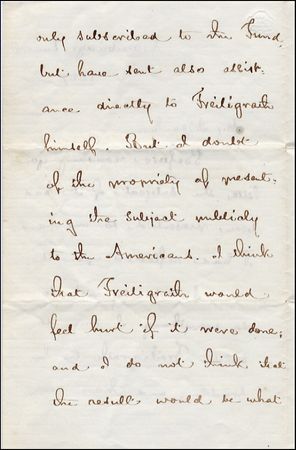 only subscribed to the Fund,
but have sent also assist-
ance directly to Freiligrath
himself. But I doubt
of the propriety of present-
ing the subject publicly
to the Americans. I think
that Freiligrath would
feel hurt if it were done;
and I do not think that
the result would be what